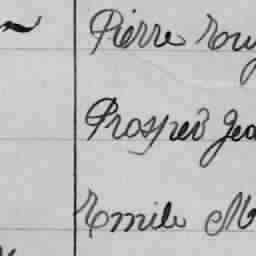 Pierre Louy
Prosper Jea
Emile M